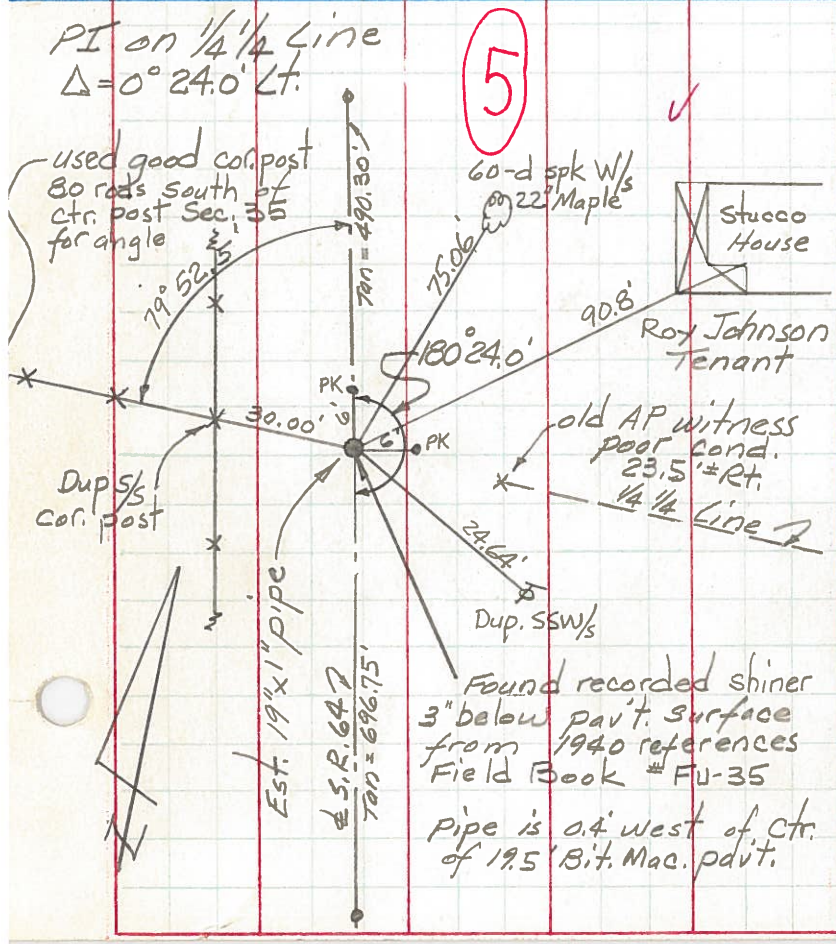 PI on 1/4 1/4 Line
Δ = 0° 24.0' Lt.
5
used good cor. post
80 rods south of
ctr. post Sec. 35
for angle
79° 52.5'
Tan = 490.30'
60-d spk W/s
22" Maple
75.06'
Stucco
House
90.8'
Roy Johnson
Tenant
180° 24.0'
PK
6'
6'
PK
30.00'
Dup S/s
cor. post
old AP witness
poor cond.
23.5' ± Rt.
1/4 1/4 Line
24.64'
Dup. SSW/s
Est. 19" x 1" pipe
℄ S.R. 64
Tan = 696.75'
N
Found recorded shiner
3" below pav't. surface
from 1940 references
Field Book # FU-35
Pipe is 0.4' west of Ctr.
of 19.5' Bit. Mac. pav't.